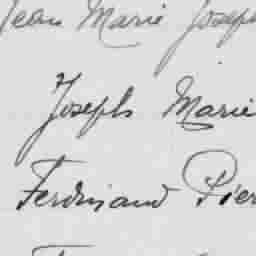 Jean Marie Joseph
Joseph Marie
Ferdinand Pier